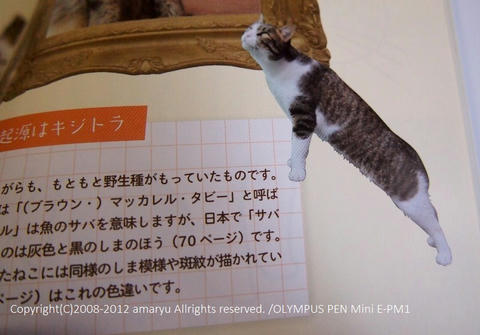 起源はキジトラ
がらも、もともと野生種がもっていたものです。
は「(ブラウン・) マッカレル・タビー」と呼ば
ル」は魚のサバを意味しますが、日本で「サバ
のは灰色と黒のしまのほう (70 ページ) です。
たねこには同様のしま模様や斑紋が描かれてい
ページ) はこれの色違いです。
Copyright(C)2008-2012 amaryu Allrights reserved. /OLYMPUS PEN Mini E-PM1